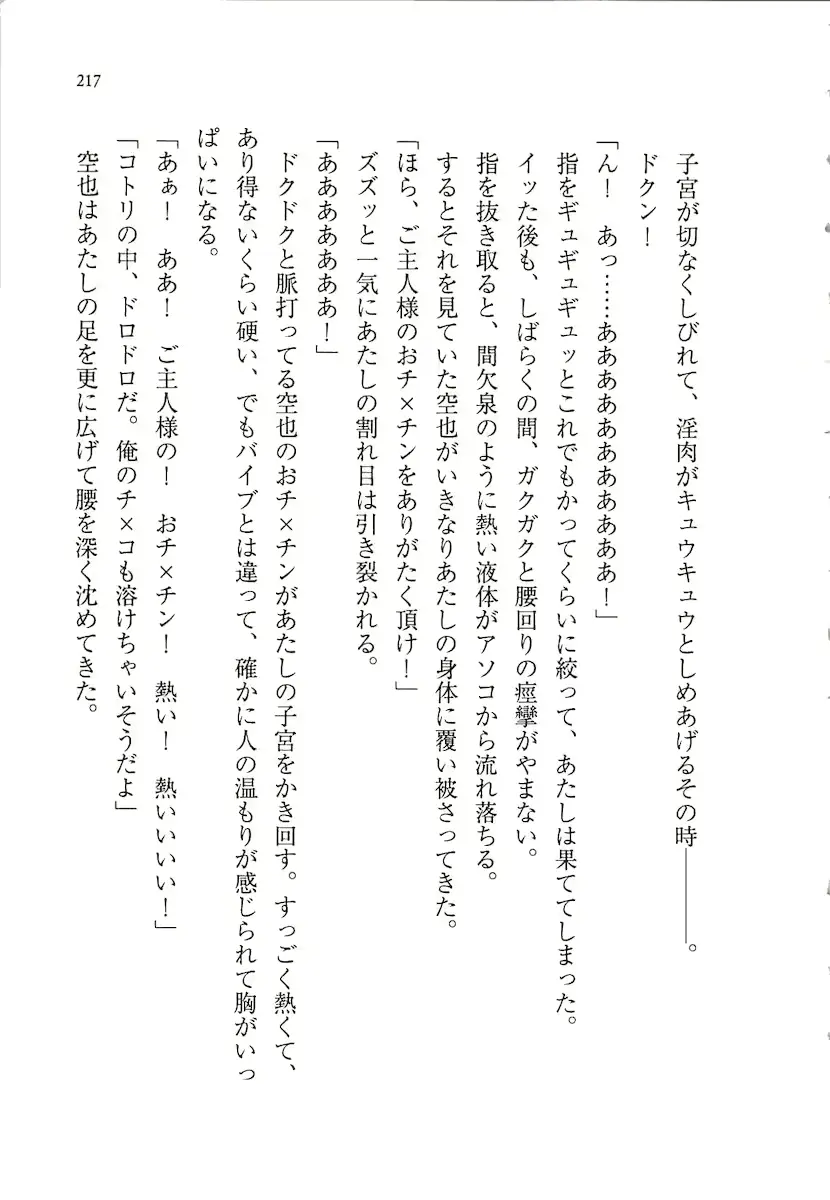 217
子宮が切なくしびれて、淫肉がキュウキュウとしめあげるその時――――。
ドクン！
「ん！　あっ……ああああああああああああ！」
指をギュギュギュッとこれでもかってくらいに絞って、あたしは果ててしまった。
イッた後も、しばらくの間、ガクガクと腰回りの痙攣がやまない。
指を抜き取ると、間欠泉のように熱い液体がアソコから流れ落ちる。
するとそれを見ていた空也がいきなりあたしの身体に覆い被さってきた。
「ほら、ご主人様のおチ×チンをありがたく頂け！」
ズズッと一気にあたしの割れ目は引き裂かれる。
「ああああああああ！」
ドクドクと脈打ってる空也のおチ×チンがあたしの子宮をかき回す。すっごく熱くて、
あり得ないくらい硬い、でもバイブとは違って、確かに人の温もりが感じられて胸がいっ
ぱいになる。
「あぁ！　ああ！　ご主人様の！　おチ×チン！　熱い！　熱いいいい！」
「コトリの中、ドロドロだ。俺のチ×コも溶けちゃいそうだよ」
空也はあたしの足を更に広げて腰を深く沈めてきた。